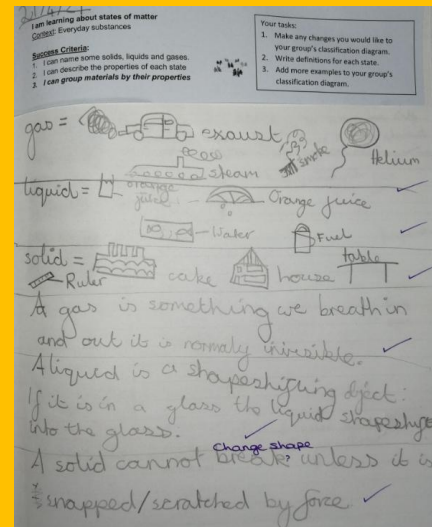 I am learning about states of matter
Context: Everyday substances
Success Criteria:
1. I can name some solids, liquids and gases.
2. I can describe the properties of each state
3. I can group materials by their properties
Your tasks:
1. Make any changes you would like to
your group's classification diagram.
2. Write definitions for each state.
3. Add more examples to your group's
classification diagram.
gas = exaust smoke Helium
steam
liquid = orange juice Orange juice
Water Fuel
solid = cake house table
Ruler
A gas is something we breath in
and out it is normaly invisible.
A liquid is a shapeshifting object:
If it is in a glass the liquid
into the glass.
Change shape
A solid cannot break unless it is
snapped/scratched by force